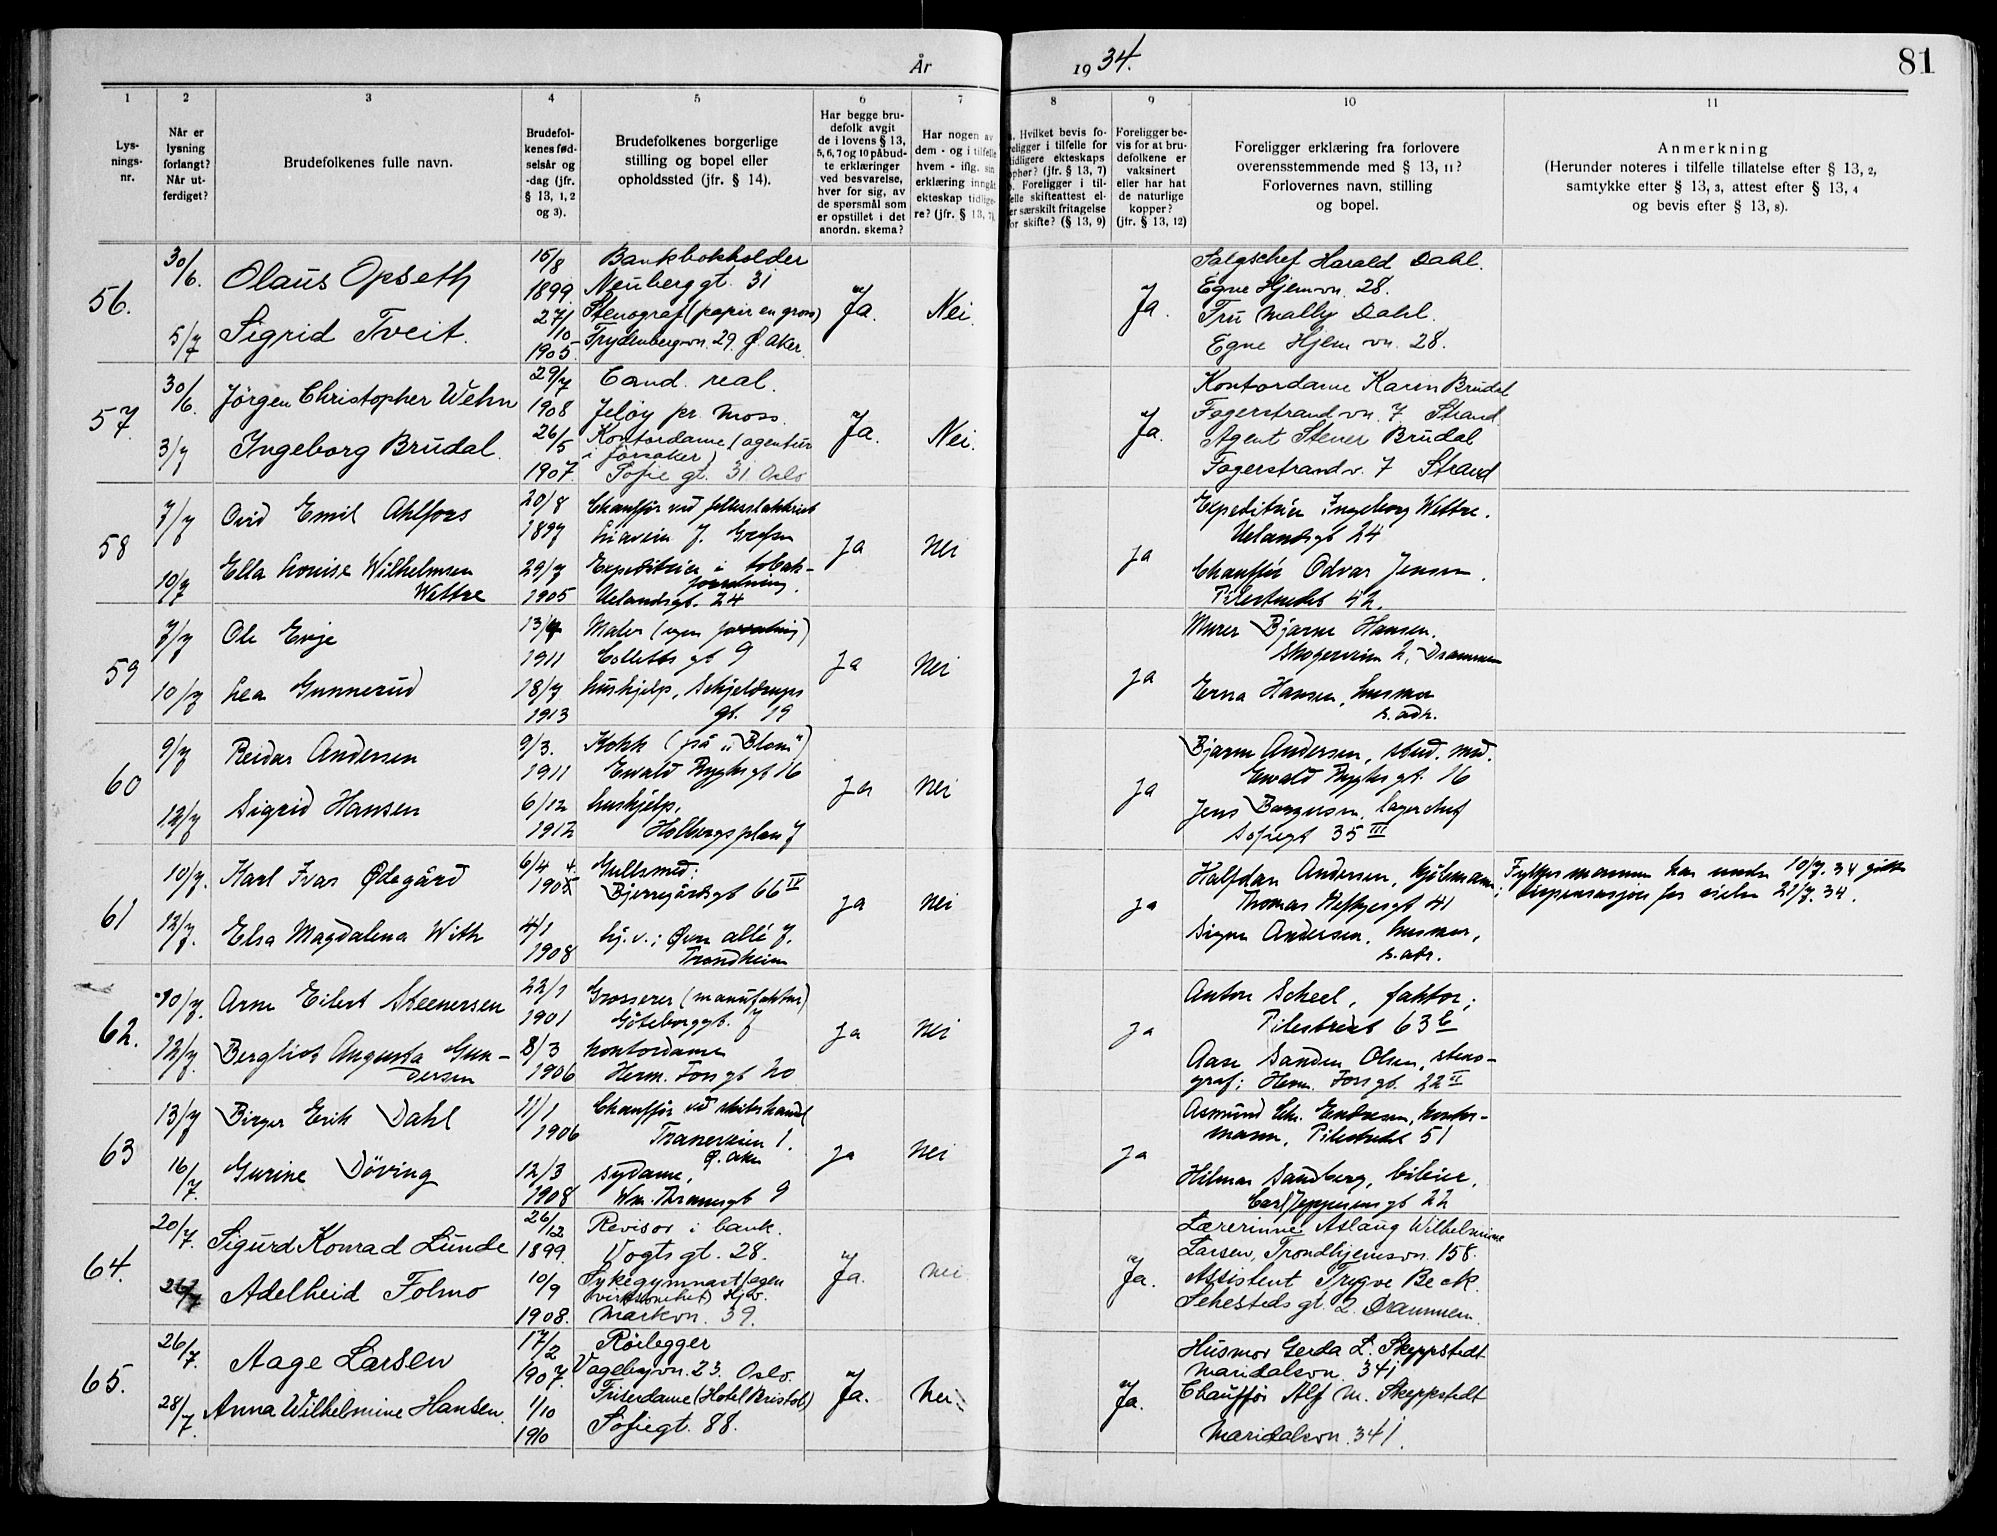 År
1934.
81
1
2
3
4
5
6
7
8
9
10
11
Lys-
nings-
nr.
Når er
lysning
forlangt?
Når ut-
ferdiget?
Brudefolkenes fulle navn.
Brudefol-
kenes fød-
selsår og
-dag (jfr.
§ 13, 1, 2
og 3).
Brudefolkenes borgerlige
stilling og bopel eller
opholdssted (jfr. § 14).
Har begge bru-
defolk avgit
de i lovens § 13,
5, 6, 7 og 10 påbud-
te erklæringer
ved besvarelse,
hver for sig, av
de spørsmål som
er opstillet i det
anordn. skema?
Har nogen av
dem - og i tilfelle
hvem - iflg. sin
erklæring inngått
ekteskap tidlige-
re? (jfr. § 13, 7).
Hvilket bevis fo-
religger i tilfelle for
tidligere ekteskaps
ophør? (jfr. § 13, 7)
Foreligger i til-
felle skifteattest el-
ler særskilt fritagelse
for skifte? (§ 13, 9)
Foreligger be-
vis for at bru-
defolkene er
vaksinert
eller har hat
de naturlige
kopper?
(jfr. § 13, 12)
Foreligger erklæring fra forlovere
overensstemmende med § 13, 11?
Forlovernes navn, stilling
og bopel.
Anmerkning
(Herunder noteres i tilfelle tillatelse efter § 13, 2,
samtykke efter § 13, 3, attest efter § 13, 4
og bevis efter § 13, 8).
56.
30/6.
5/7
Olaus Opseth
Sigrid Tveit.
15/8
1899.
27/10
1905.
Bankbokholder
Neuberggt. 31
Stenograf (papir en gross)
Frydenbergvn. 29. Ø. Aker.
Ja.
Nei.
Ja.
Salgschef Harald Dahl.
Egne Hjem vn. 28.
Fru Mally Dahl.
Egne Hjem vn. 28.
57.
30/6.
3/7
Jörgen Christopher Wehn
Ingeborg Brudal.
29/7
1908
26/5
1907.
Cand. real.
Jeløy pr. Moss.
Kontordame (agentur
i
Sofie gt. 31 Oslo
Ja.
Nei.
Ja.
Kontordame Karen Brudal
Fagerstrand vn. 7 Strand.
Agent Stener Brudal
Fagerstrandv. 7 Strand
58
7/7
10/7
Ovid Emil Ahlfors
Ella Louise Wilhelmsen
Wettre
20/8
1897
29/7
1905
Chauffør ved
Grefsen
Expeditrise i tobak-
forretning.
Uelandsgt. 24
Ja
Nei
Ja
Expeditrise Ingeborg Wettre.
Uelandsgt 24
Chauffør Odvar Jensen.
Pilestredet 42.
59
7/7
10/7
Ole Evje
Lea Gunnerud
13/
1911
18/7
1913
Maler (egen forretning)
Colletts gt 9
hushjelp, Schjeldrups
gt. 19
Ja
Nei
Ja
Murer Bjarne Hansen.
Skogerveien 2, Drammen
Erna Hansen, husmor
s. adr.
60
9/7
12/7
Reidar Andersen
Sigrid Hansen
9/3.
1911
6/12
1912
Kokk (på "Blom")
Ewald Ryghsgt 16
hushjelp,
Holbergsplass 7
Ja
Nei
Ja
Bjarne Andersen, stud. med.
Ewald Ryghsgt. 16
Jens Borgersen, lagerchef
Sofiegt 35 III
61
10/7.
12/7.
Karl Ivar Ødegård
Elsa Magdalena With
6/4
4/1
1908
Gullsmed;
Bjerregårdsgt 66 IV
hj. v.; Øvre allé 7,
Trondheim
Ja
Nei
Ja
Halfdan Andersen, kjølemann,
Thomas Heftyesgt 41
Signe Andersen, husmor,
s. adr.
Fylkesmannen har under 10/7. 34 gitt
dispensasjon for vielse 21/7. 34.
62.
10/7.
12/7.
Arne Eilert Steenersen
Bergliot Augusta Gun-
dersen
22/1
1901
8/3
1906
Grosserer (manufaktur)
Göteborggt. 7
kontordame
Herm. Fossgt 20
Ja
Nei
Ja
Anton Scheel, faktor;
Pilestredet 63 c
Aase Sanden Olsen, steno-
graf; Herm. Fossgt. 22 II
63
13/7
16/7.
Birger Erik Dahl
Gurine Döving
11/1
1906
12/3
1908
Chauffør ved
Traneveien 1.
Ø. Aker
Sydame,
Wm. Thranesgt 9
Ja
Nei
Ja
Asmund Chr. Endresen, kontor-
mann, Pilestredet 51
Hilmar Sandberg, bileier,
Carl Jeppesensgt 22
64.
20/7.
Sigurd Konrad Lunde
Adelheid Folmo
26/12
1899.
10/9
1908.
Revisor i bank.
Vogts gt. 28.
Sykegymnast (egen
virksomhet) Hjv.
Markvn. 39.
Ja.
Nei.
Ja.
Lærerinne Aslaug Wilhelmine
Larsen, Trondhjemsvn. 158.
Assistent Trygve Beck
Sehesteds gt. 2. Drammen.
65.
26/7.
28/7.
Aage Larsen
Anna Wilhelmine Hansen.
17/2
1907.
1/10
1910
Rörlegger
Vøgebyvn. 23. Oslo.
Friserdame (Hotel Bristol)
Sofiegt. 88.
Ja.
Nei.
Ja.
Husmor Gerda L. Skeppstedt
Maridalsvn. 341
Chauffør Alf M. Skeppstedt
Maridalsvn. 341.